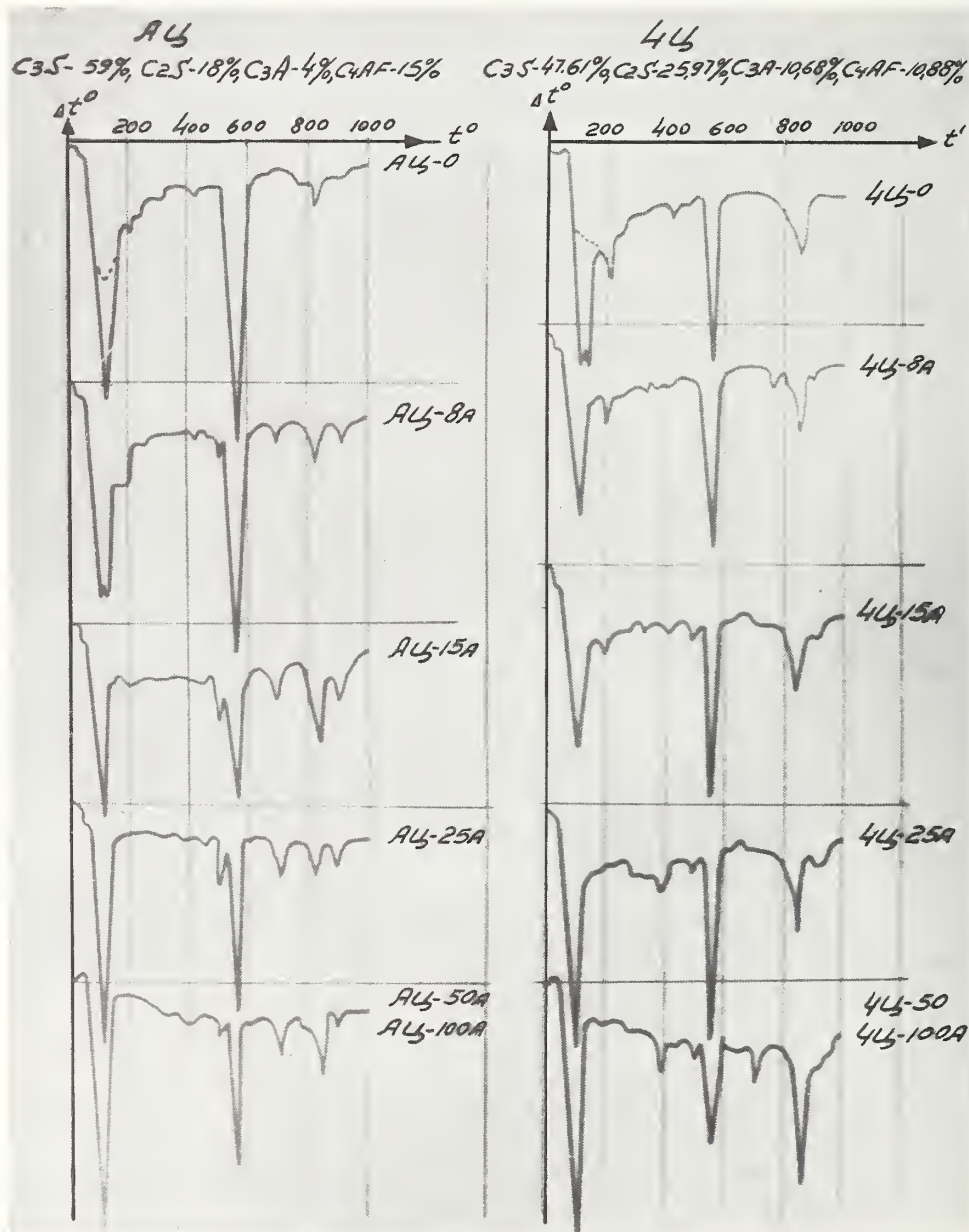 АЦ
C3S- 59%, C2S-18%, C3A-4%, C4AF-15%
Δt°
200 400 600 800 1000
t°
АЦ-0
АЦ-8А
АЦ-15А
АЦ-25А
АЦ-50А
АЦ-100А
4Ц
C3S-47.61%, C2S-25,97%, C3A-10,68%, C4AF-10,88%
Δt°
200 400 600 800 1000
t'
4Ц-0
4Ц-8А
4Ц-15А
4Ц-25А
4Ц-50
4Ц-100А